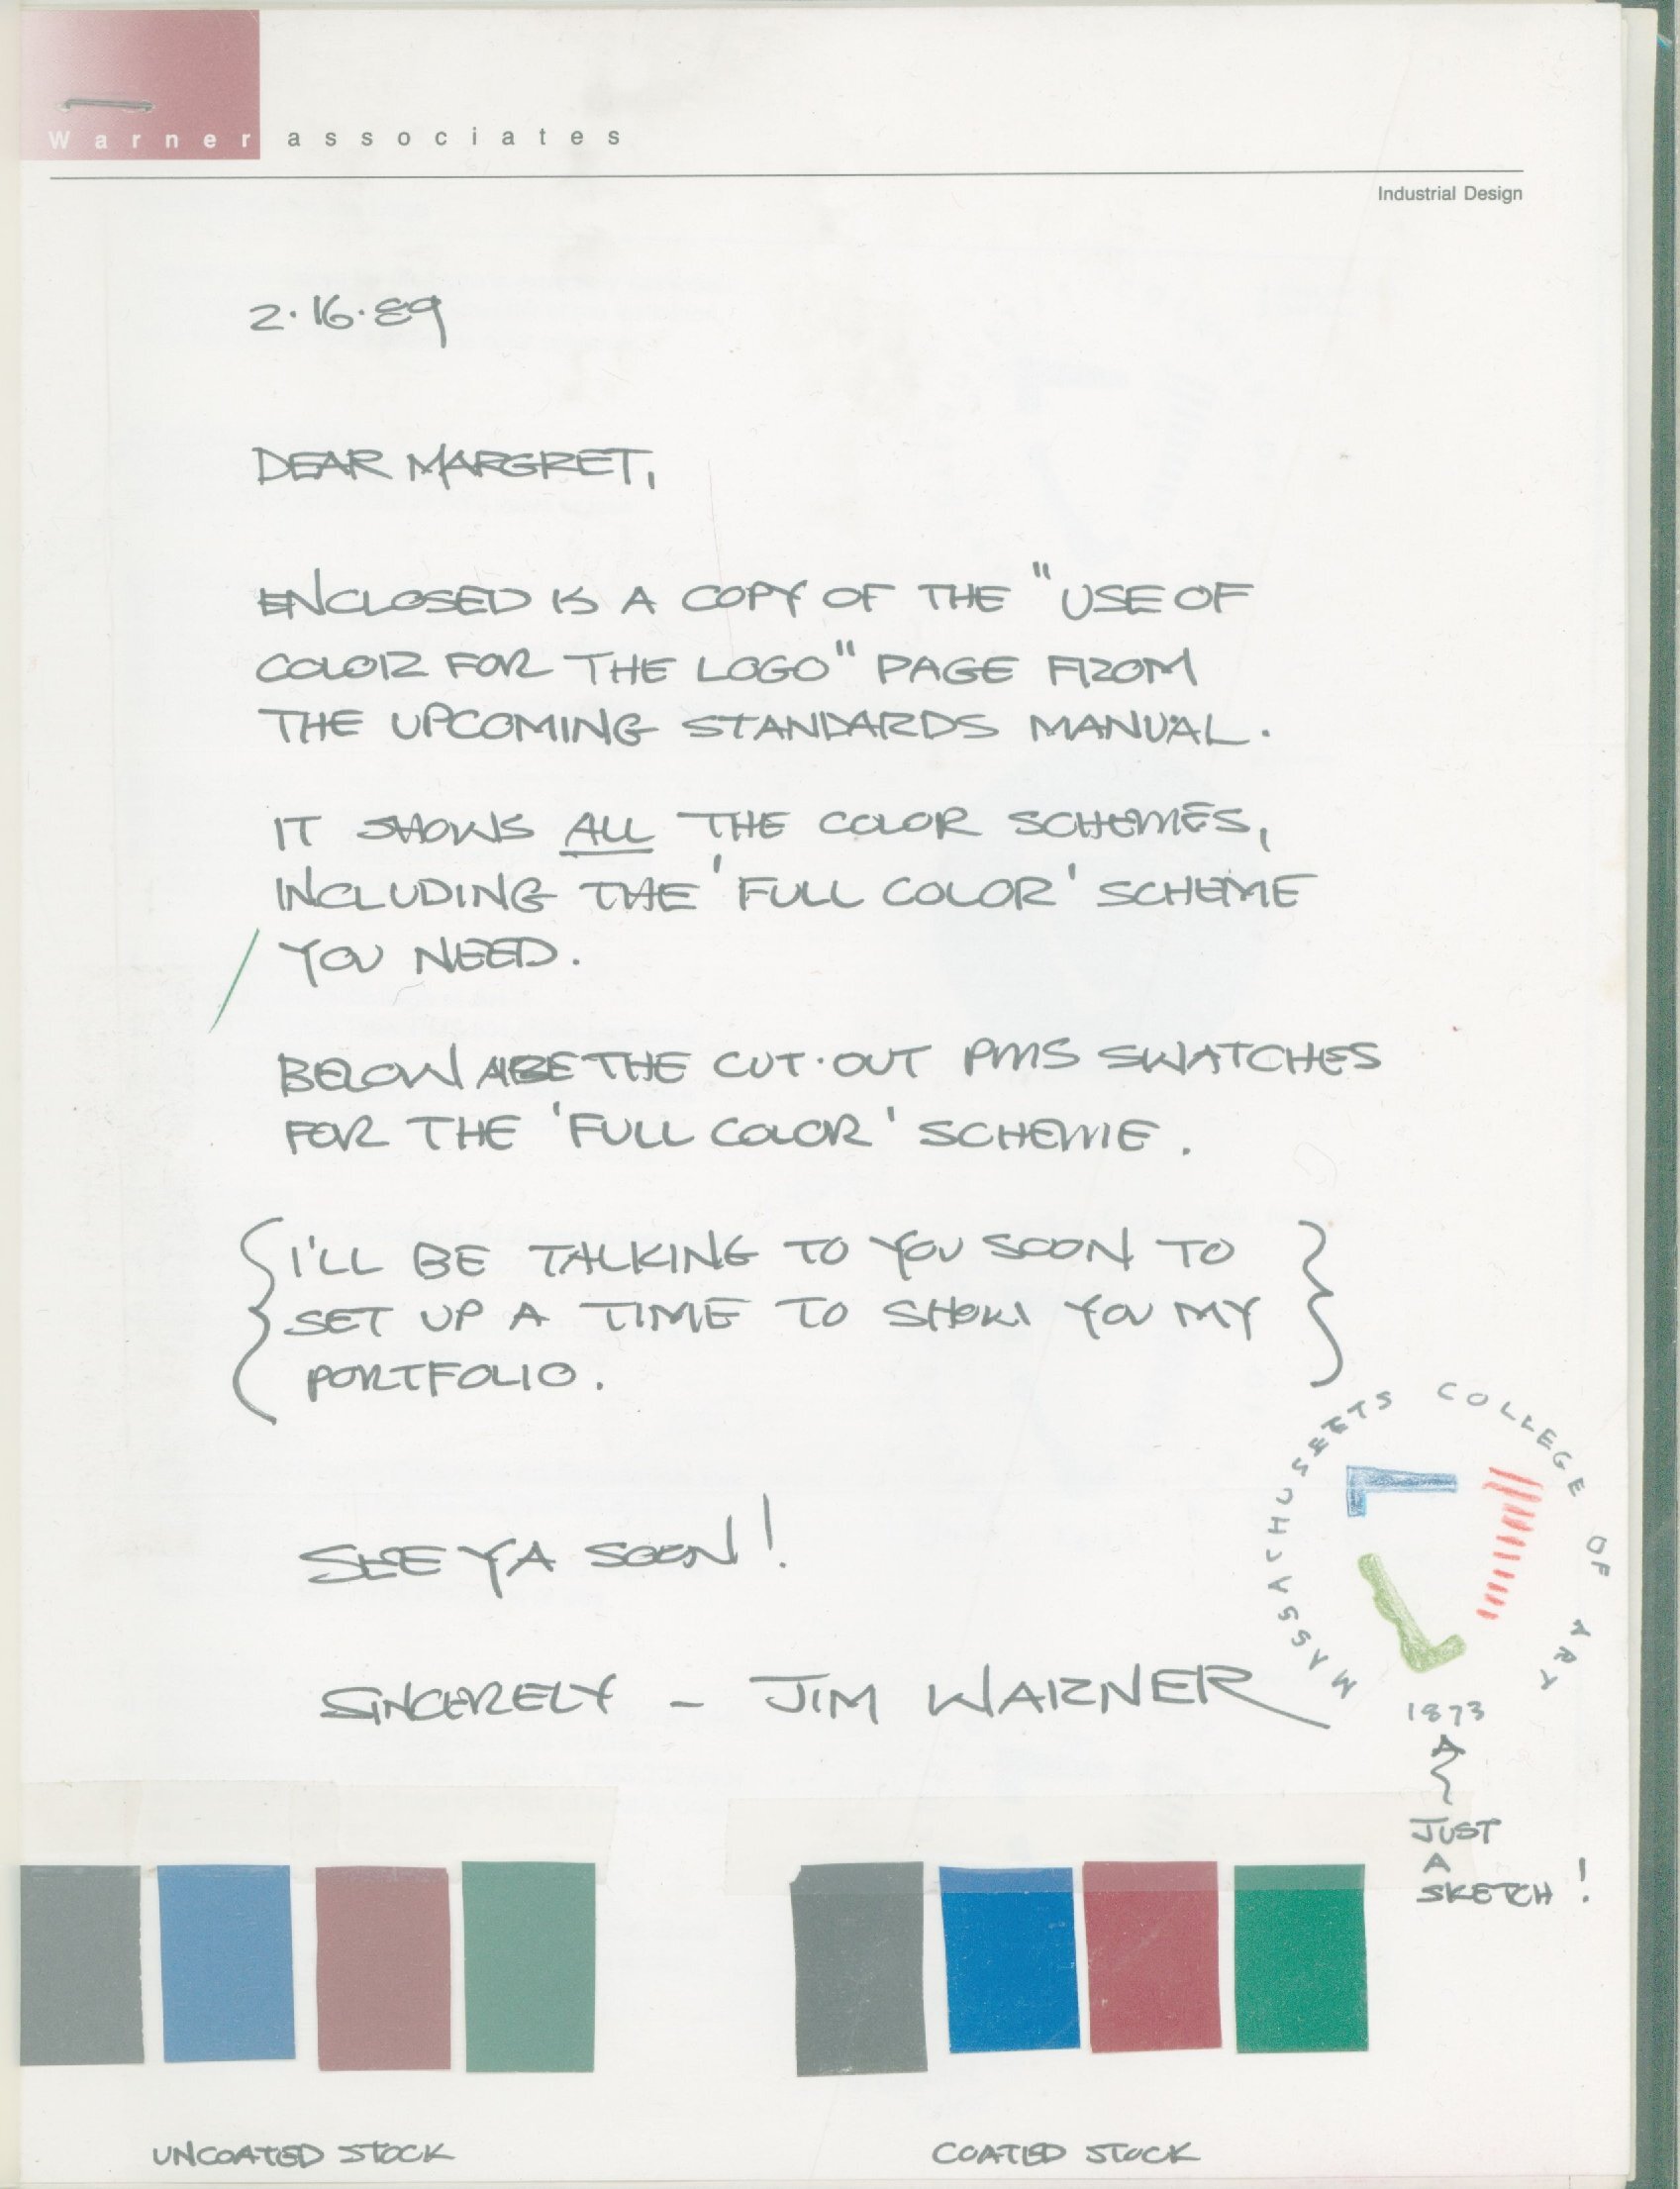 Warner associates
Industrial Design
2·16·89
DEAR MARGRET,
ENCLOSED IS A COPY OF THE "USE OF
COLOR FOR THE LOGO" PAGE FROM
THE UPCOMING STANDARDS MANUAL.
IT SHOWS ALL THE COLOR SCHEMES,
INCLUDING THE 'FULL COLOR' SCHEME
YOU NEED.
BELOW ARE THE CUT·OUT PMS SWATCHES
FOR THE 'FULL COLOR' SCHEME.
{I'LL BE TALKING TO YOU SOON TO
SET UP A TIME TO SHOW YOU MY
PORTFOLIO.}
SEE YA SOON!
SINCERELY - JIM WARNER
MASSACHUSEETS COLLEGE OF ART
1873
JUST
A
SKETCH!
UNCOATED STOCK
COATED STOCK